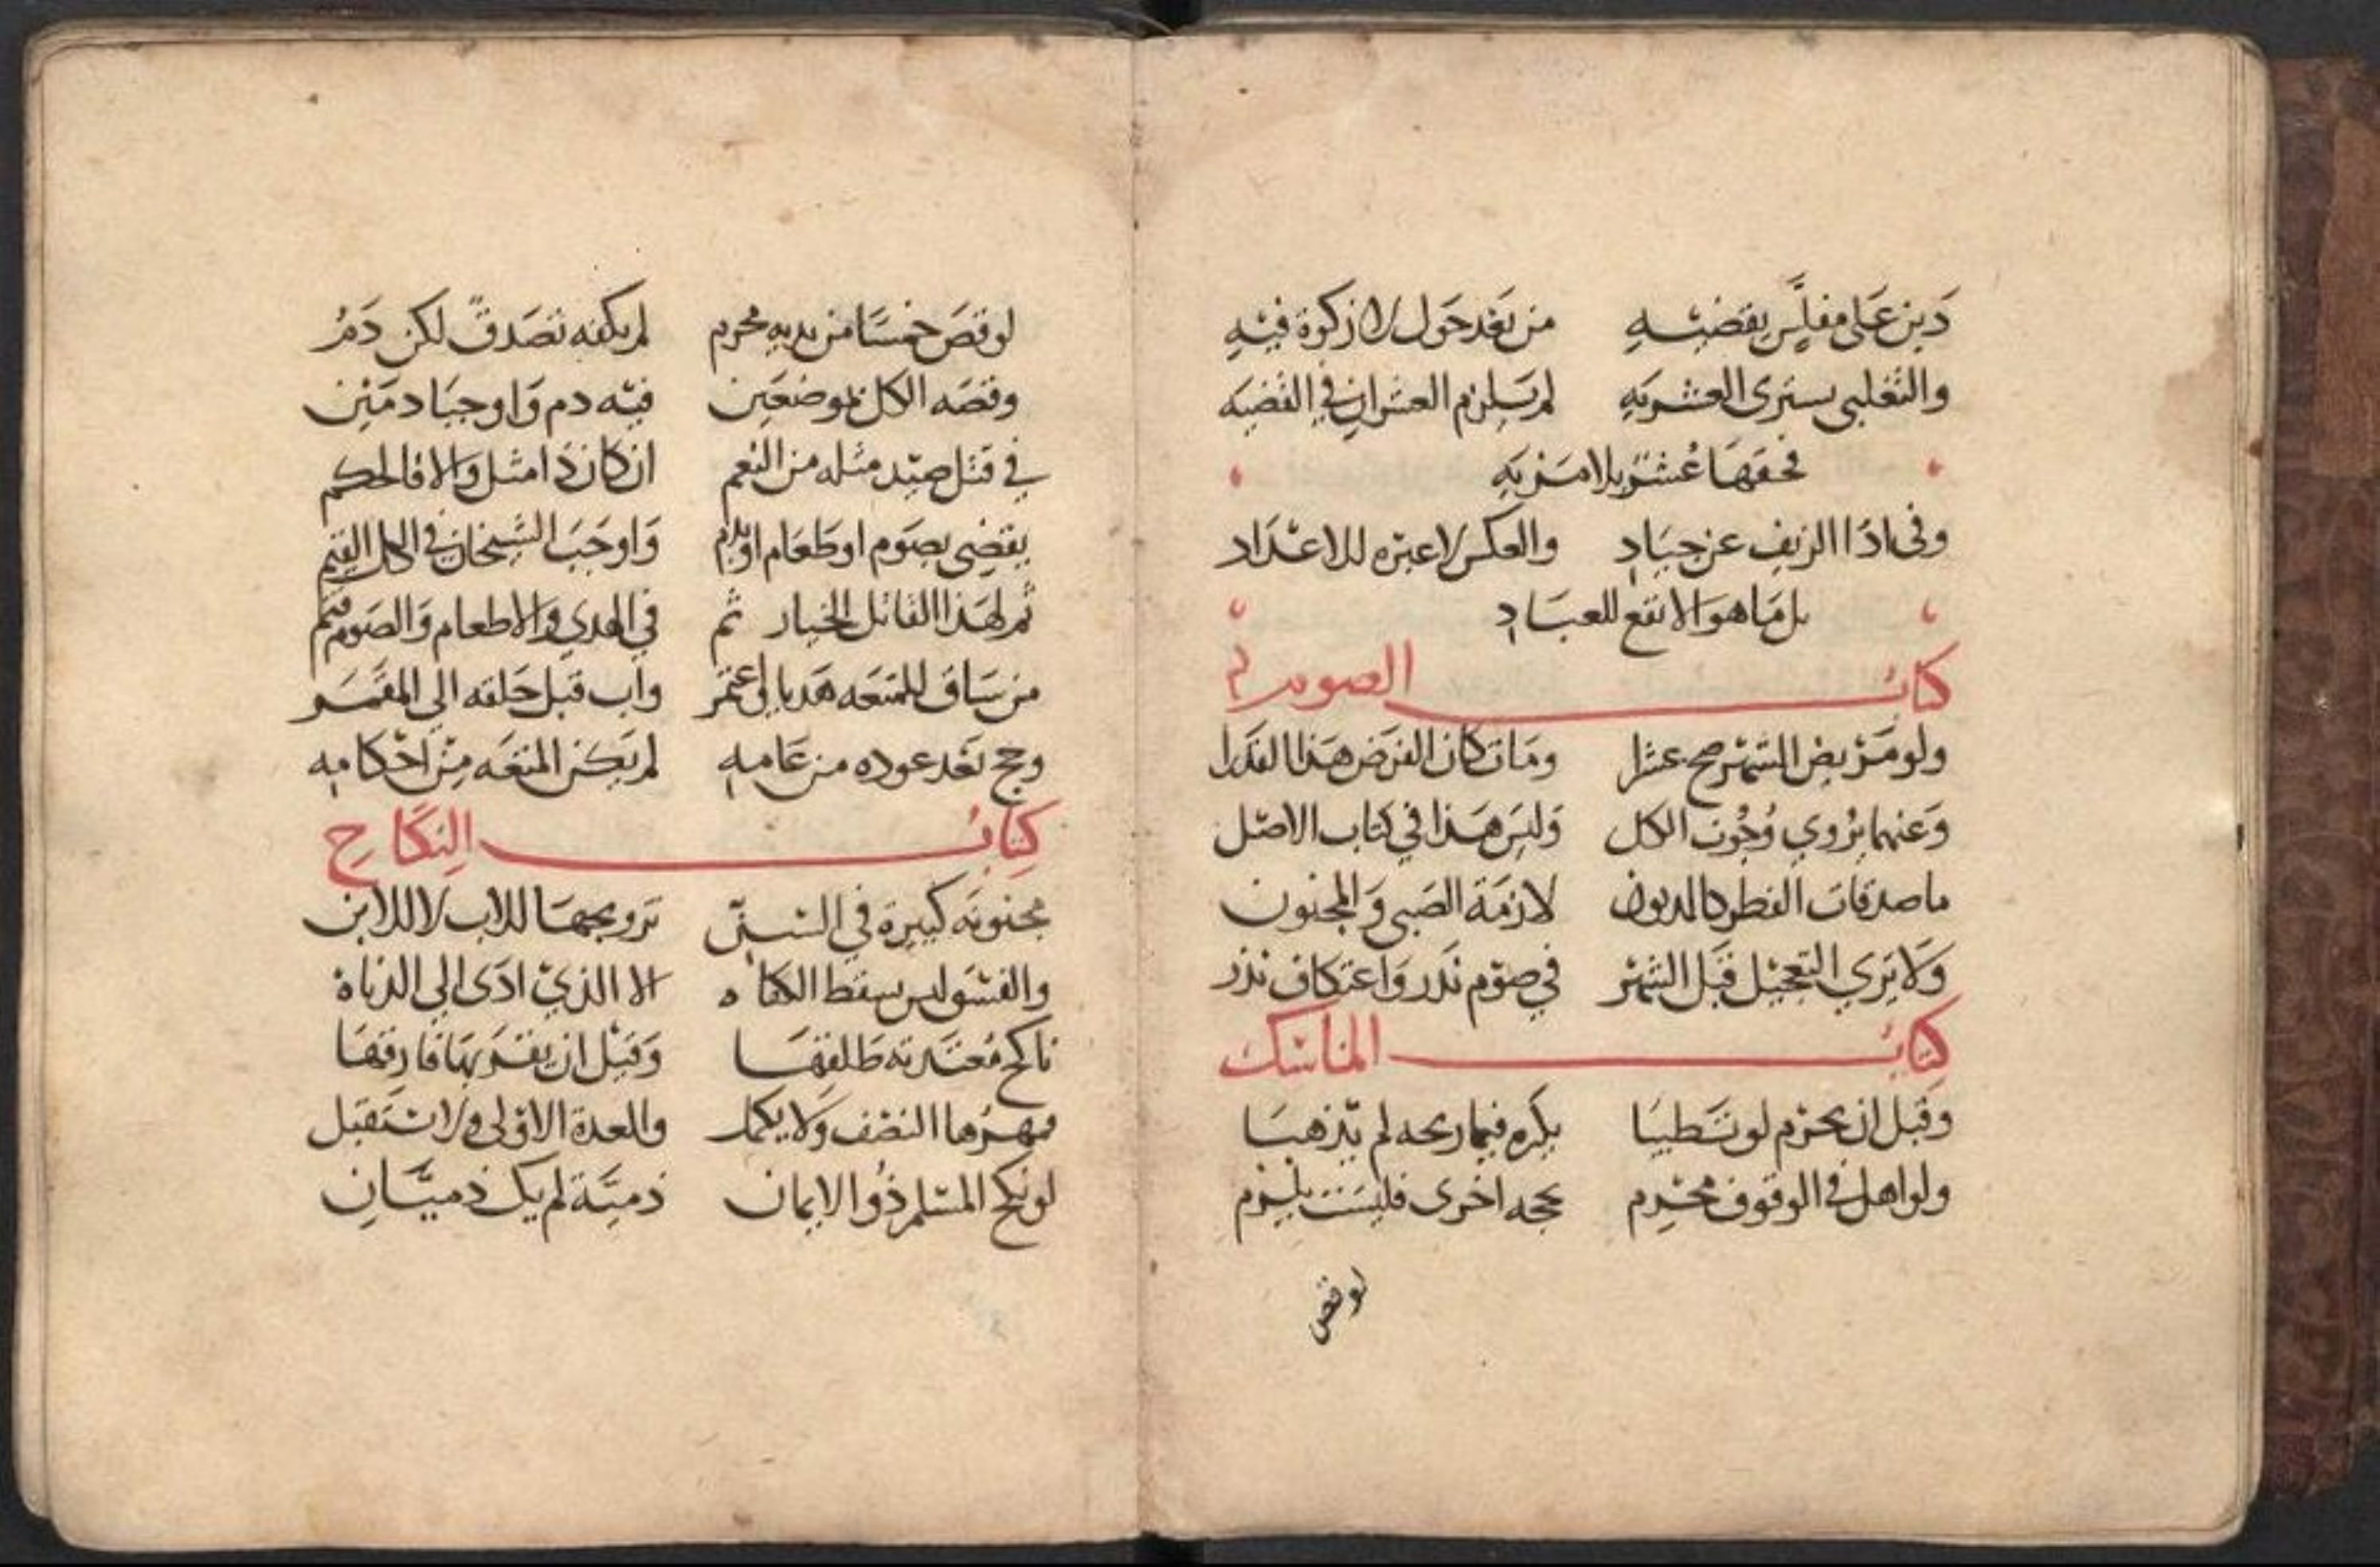 دَين عَلى مفلَّس يقضيه من بَعْد حَول لا زكوة فيه
والتغلبي يسترى العشريه لم يَلزم العشران في القضيه
فحقهَا عُشْر بلا مَزيه
وفي ادَا الزيف عن جيَاد والعكس لا عبره للاعتداد
بل مَا هو الانفع للعبَاد
كتاب الصوم
ولو مَريض الشهر صح عشرا ومَات كان الفرض هَذا القدرا
وَعنهما يُروي وُجُوب الكل وَليس هَذا في كتاب الاصل
ما صدقات الفطر كالديون لازمَة الصَبي وَالمجنون
وَلا يَري التعجيل قبَل الشهر في صَوم نَدر وَاعتكاف نذر
كتاب المناسك
وقبل ان يحرم لو تَطيبَا يكره فيما ريحه لم يَذهبَا
ولو اهل في الوقوف محرم بحجه اخرى فليسَت تلزم
لو قص
لو قصَ خمسًا من يديه محرم لم يكفه تصَدق لكن دَمُ
وقصَه الكل بموضعَين فيه دم وَاوجبَا دمَين
في قتل صيد مثله من النعم ان كان ذَا مثل وَالا فالحكم
يقضى بصَوم او طعَام او بدم وَاوجَبَ الشيخان في الكل القيم
ثم لهَذا القاتل الخيار ثم في الهدي والاطعام وَالصَوم
من سَاق للمتعَه هَديا اعتمر واب قبل حَلقه الي المقَر
وحج بَعْد عوده من عَامه لم يَكن المتعَه من احكامه
كِتَابُ النِكَاحِ
مجنونَه كبيرة في السنّ تزويجهَا للاب لا للابن
والفسق ليس يسقط الكفاه الا الذي ادَى الي الدناه
ناكح مُعتَدته طلقهَا وَقبْل ان يقرَبهَا فارقهَا
فمهرُها النصف وَلا يكمل والعدة الاوْلى وَلا تستَقبل
لو نكح المسْلم ذُو الايمان ذميَّة لم يك ذميَّانِ